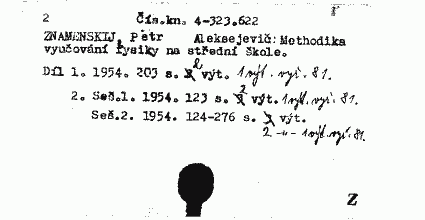 2 Čís.kn. 4-323.622
ZNAMENSKIJ, Petr Aleksejevič: Methodika
vyučování fysiky na střední škole.
Díl 1. 1954. 203 s. 2 výt. 1 výt. vyř. 81.
2. Seš.1. 1954. 123 s. 2 výt. 1 výt. vyř. 81.
Seš.2. 1954. 124-276 s. výt.
2 -"- 1 výt. vyř. 81.
Z